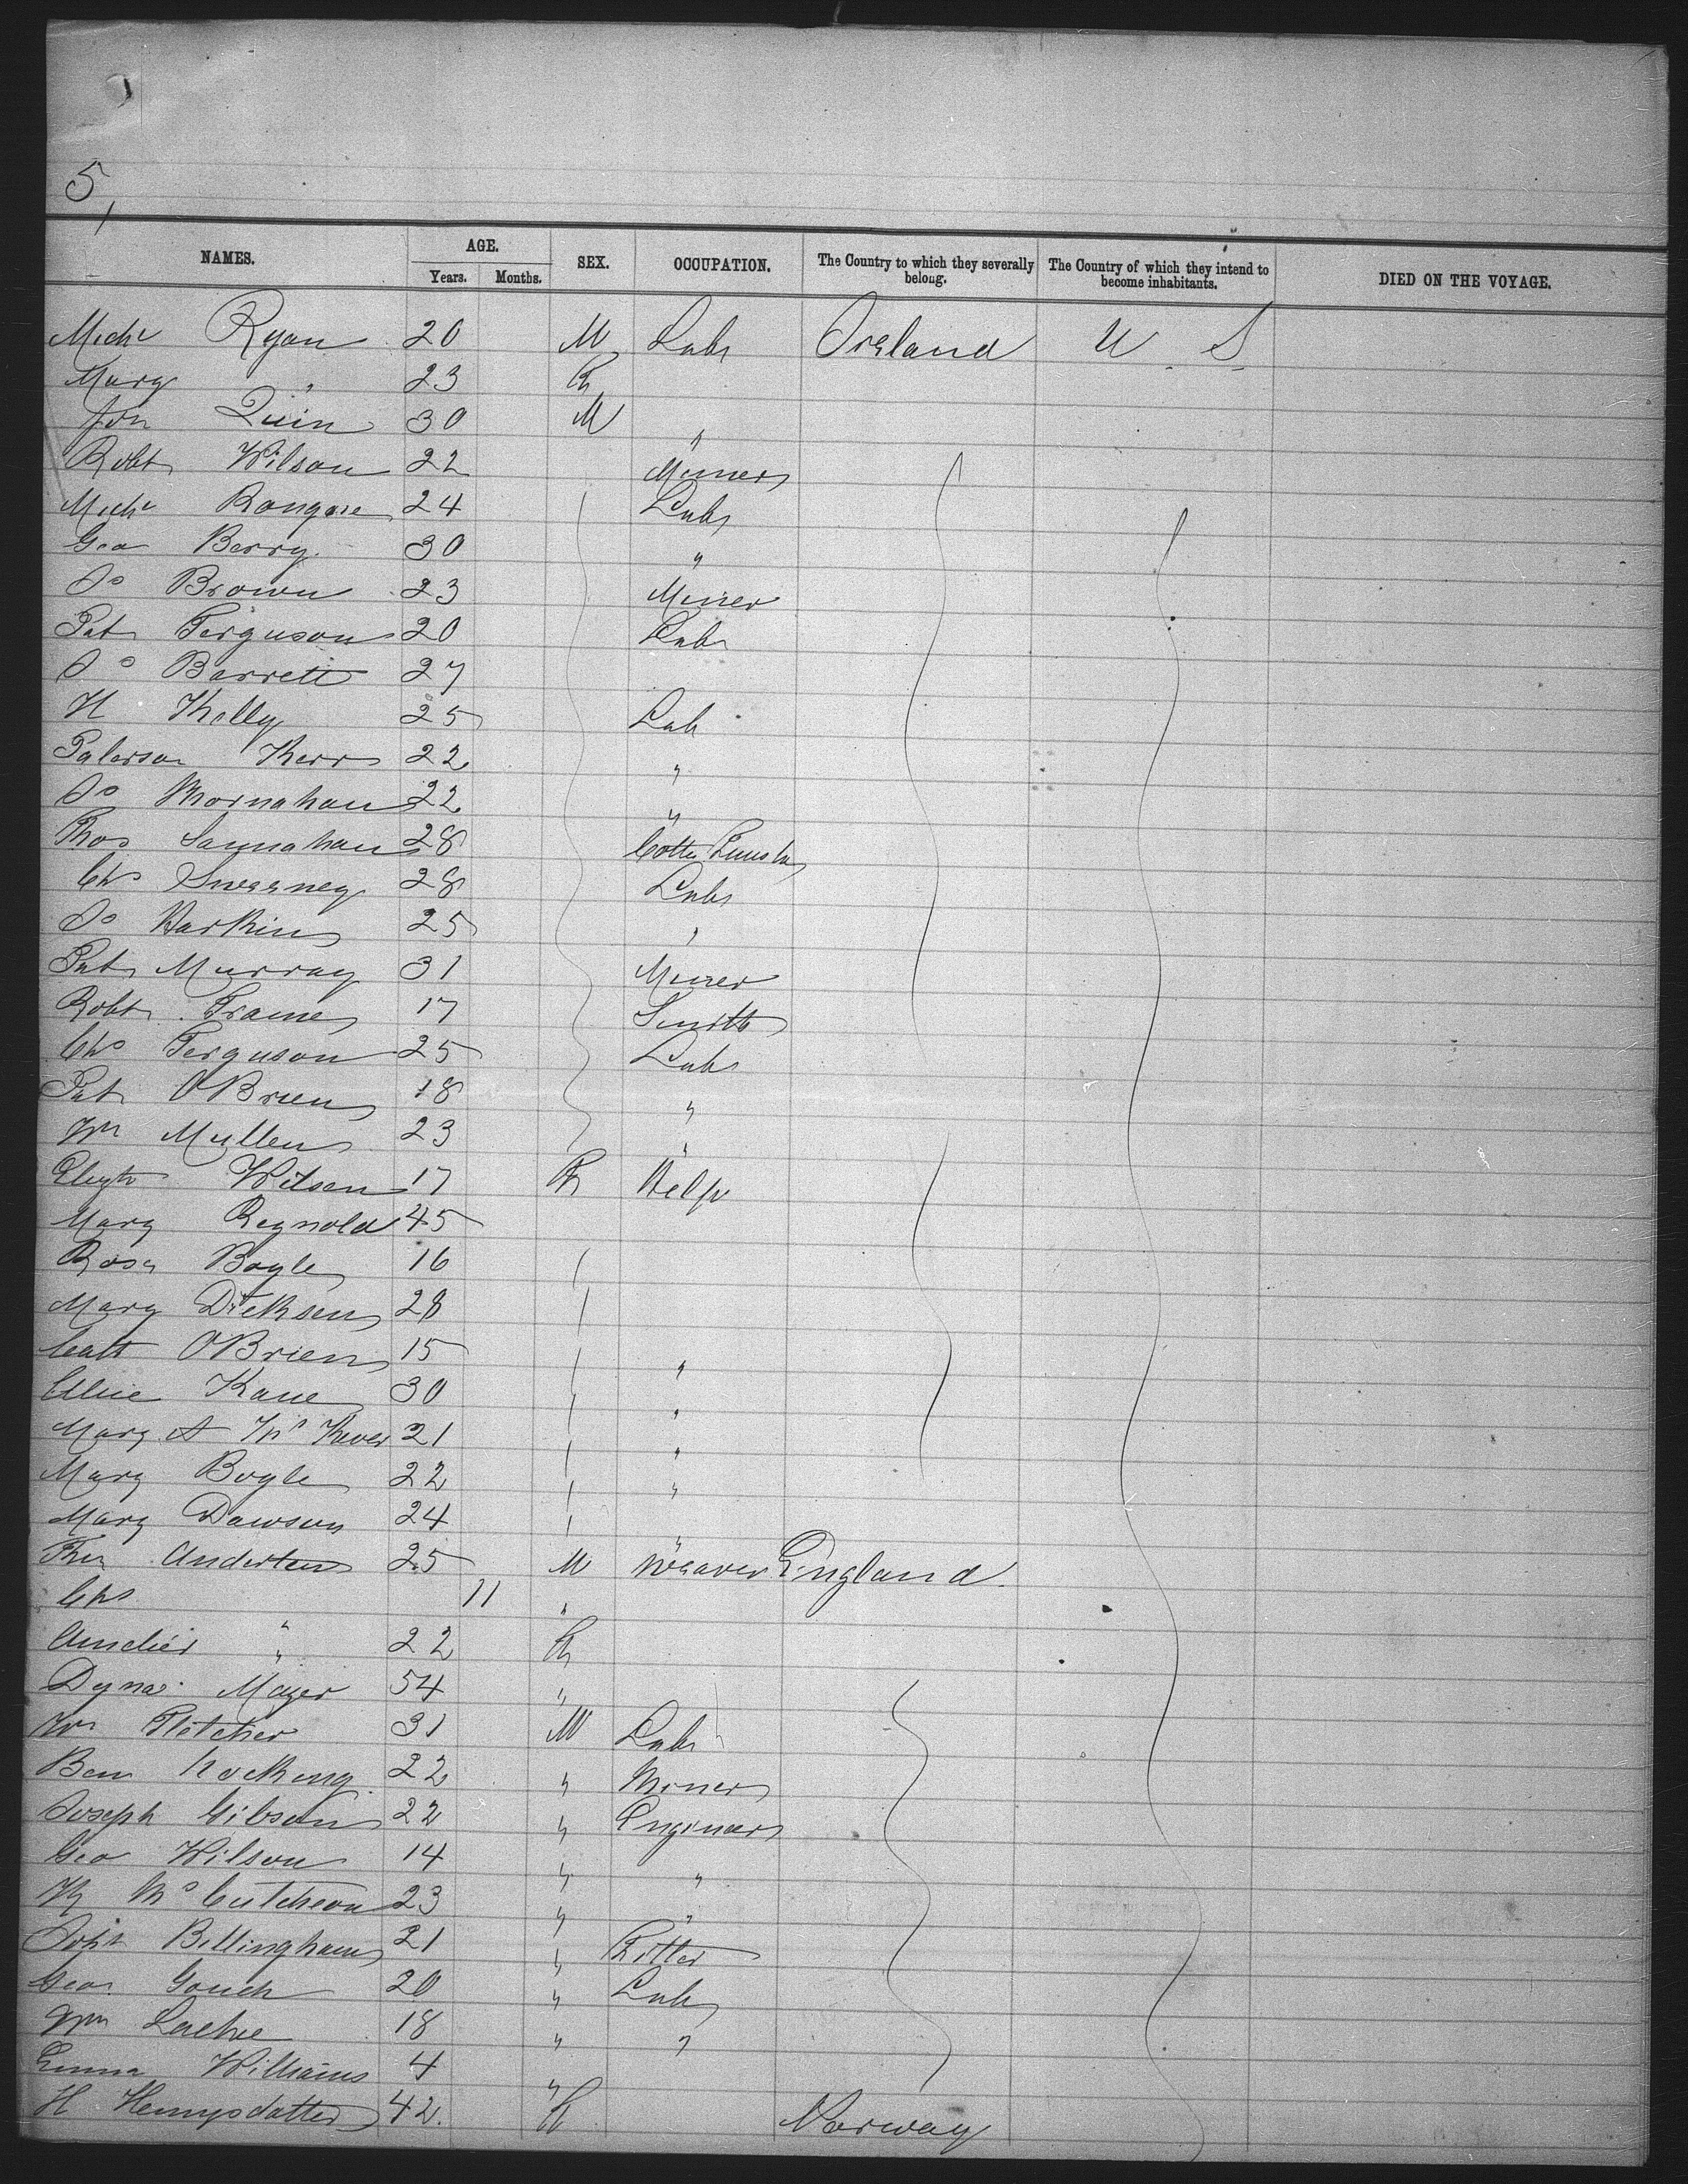 5,
NAMES. AGE. Years. Months. SEX. OCCUPATION. The Country to which they severally belong. The Country of which they intend to become inhabitants. DIED ON THE VOYAGE.
Michl Ryan 20 M Labr Ireland U S
Mary " 23 F
Jon Quin 30 M "
Robt Wilson 22 Miner
Michl 24 Labr
Geo Berry 30 "
Jo Brown 23 Miner
Pat Ferguson 20 Labr
Jo Barrett 27
H Kelly 25 Lab
Paterson Kerr 22 "
Jo Mornahan 22 "
Thos Lannahan 28
Chs Sweeney 28 Labr
Jo Harkin 25 "
Pat Murray 31 Miner
Robt Frame 17 Smith
Chs Ferguson 25 Labr
Pat OBrien 18 "
Wm Mullen 23 "
Wilson 17 F Help
Mary Reynold 45
Rose Boyle 16
Mary Dickson 28
Cath OBrien 15 "
Alice Kane 30 "
Mary A 21 "
Mary Boyle 22 "
Mary Dawson 24 "
Anderton 25 M Weaver England
Chs " 11 "
" 22 F
54 "
Wm Fletcher 31 M Labr
Ben Hocking 22 " Miner
Joseph Gibson 22 " Engineer
Geo Wilson 14 " "
McCutcheon 23 " "
Billingham 21 " Fitter
Geo Gouch 20 " Lab
Wm 18 " "
Emma Williams 4 "
H 42 F Norway